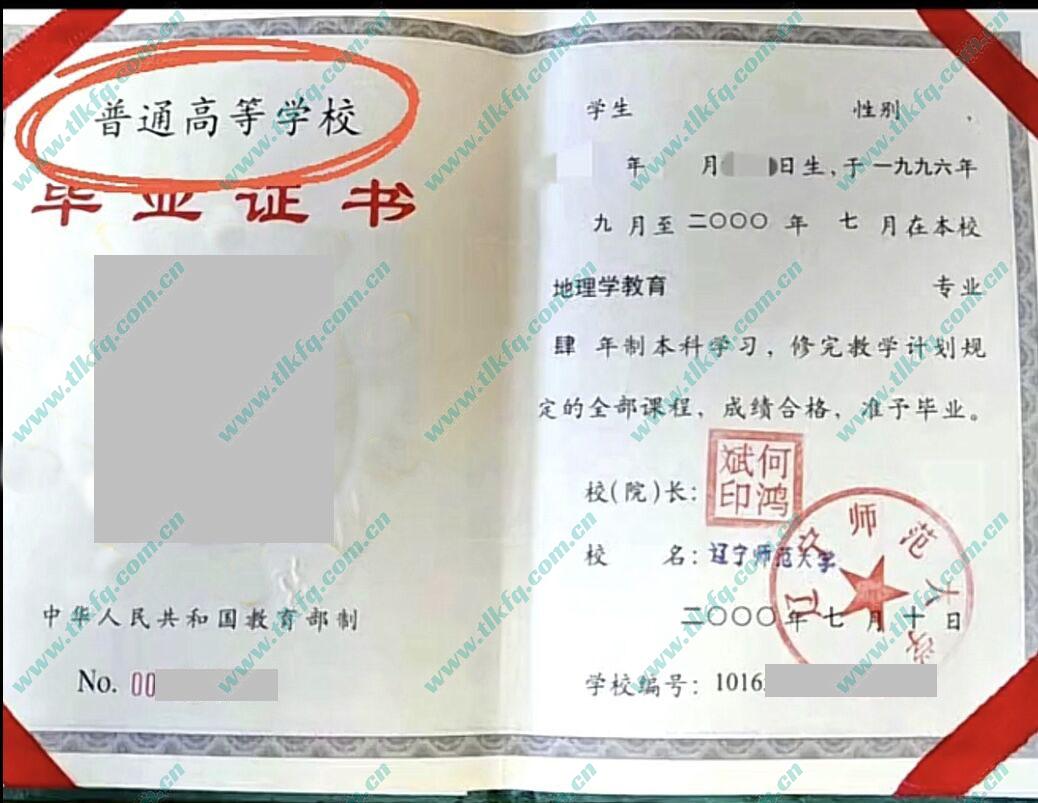 普通高等学校
毕业证书
中华人民共和国教育部制
No. 00
学生 性别 ,
年 月 日生,于一九九六年
九 月至 二〇〇〇 年 七 月在本校
地理学教育 专业
肆 年制本科学习,修完教学计划规
定的全部课程,成绩合格,准予毕业。
何鸿斌印
校(院)长:
校 名:辽宁师范大学
辽宁师范大学
二〇〇〇年七月十日
学校编号:1016
www.tlkfq.com.cn